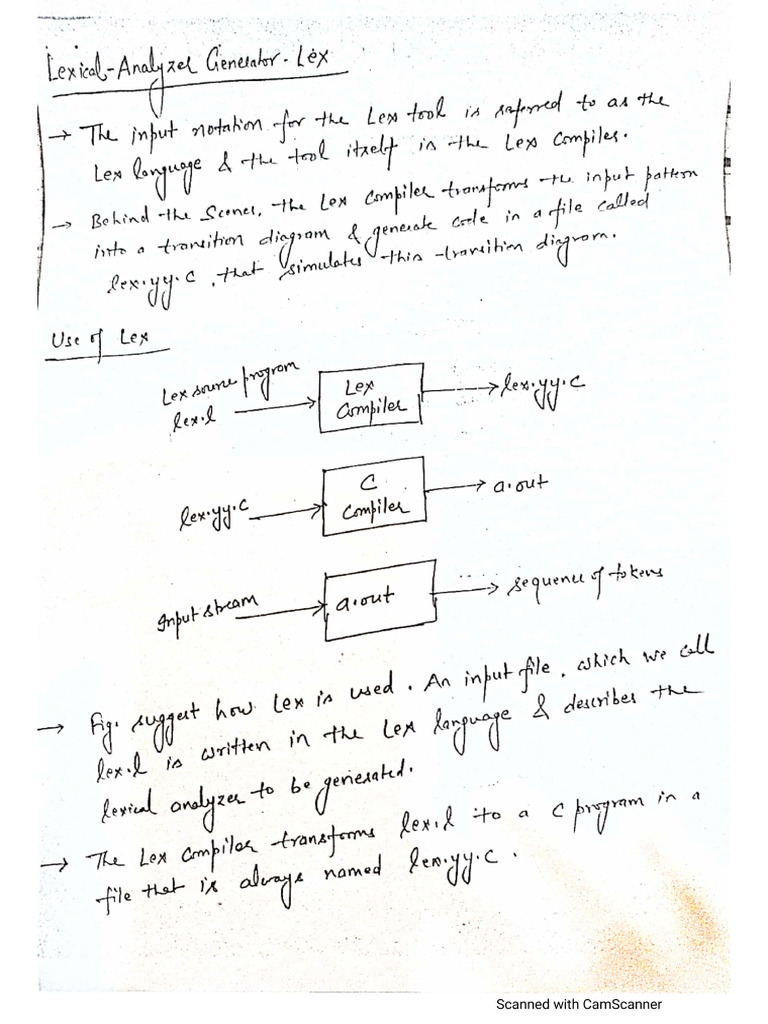 Lexical-Analyzer Generator - Lex
→ The input notation for the Lex tool is referred to as the
Lex language & the tool itself is the Lex Compiler.
→ Behind the scenes, the Lex Compiler transforms the input pattern
into a transition diagram & generate code in a file called
lex.yy.c, that simulates this transition diagram.
Use of Lex
Lex source program
lex.l
Lex
Compiler
lex.yy.c
lex.yy.c
C
Compiler
a.out
Input stream
a.out
sequence of tokens
→ Fig. suggest how Lex is used. An input file, which we call
lex.l is written in the Lex language & describes the
lexical analyzer to be generated.
→ The Lex Compiler transforms lex.l to a C program in a
file that is always named lex.yy.c.
Scanned with CamScanner